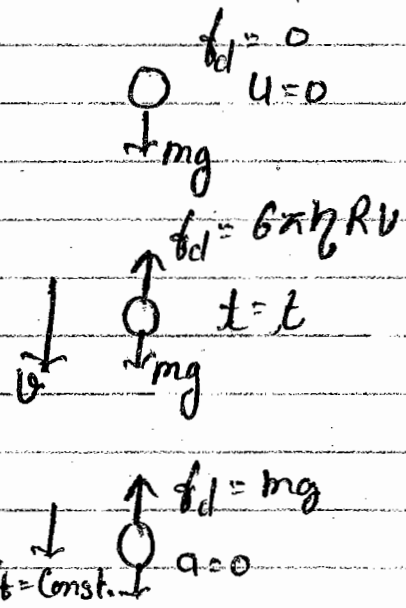 fd = 0
u = 0
mg
fd = 6πηRv
t = t
v
mg
fd = mg
a = 0
t = Const.